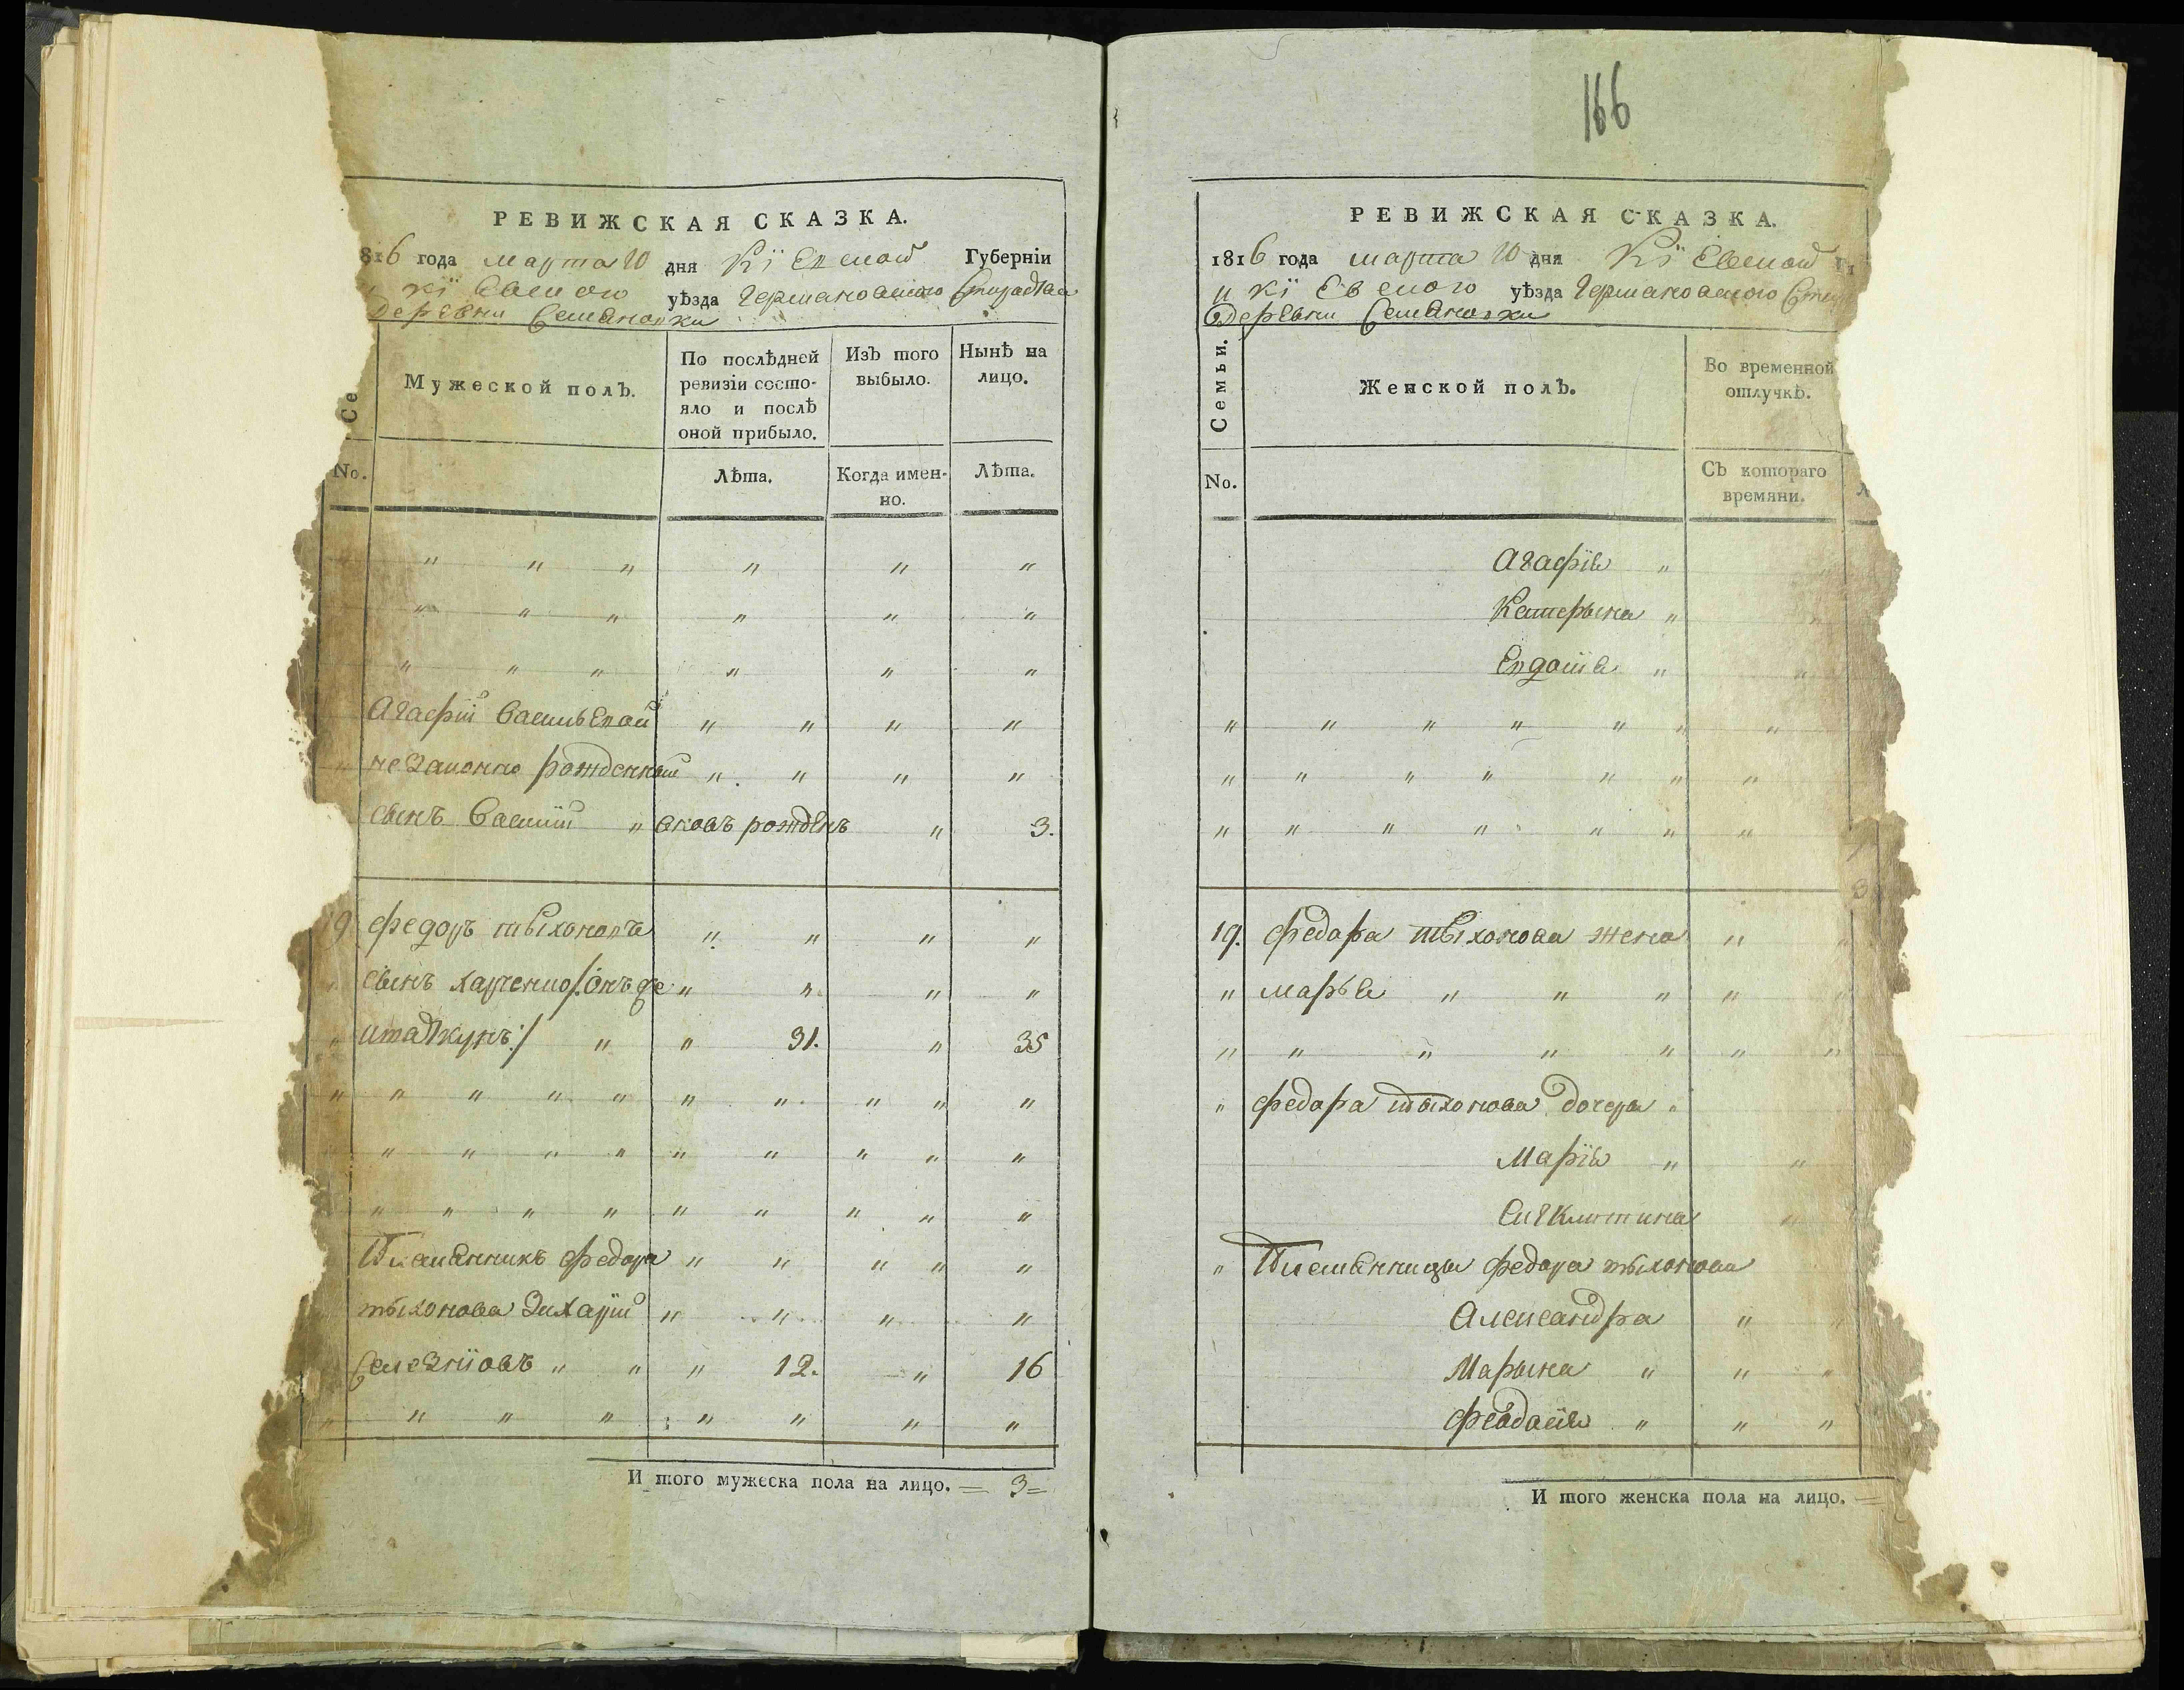 РЕВИЖСКАЯ СКАЗКА.
816 года марта 10 дня Кїевской Губерніи
и кїевского уѣзда Германовского
деревни Семеновки
Се
Мужеской полъ.
По послѣдней ревизіи состо-
яло и послѣ
оной прибыло.
Изъ того выбыло.
Нынѣ на лицо.
No.
Лѣта.
Когда имен-
но.
Лѣта.
" " " " " "
" " " " " "
" " " " " "
Агафіи Васильевой " " " "
незаконно рожденный " " " "
сынъ Василій " вновъ рожденъ " 3.
19 федоръ тыхоновъ " " " "
сынъ харченко /: онъ же " " " "
и " " 31. " 35
" " " " " " " " " "
" " " " " " " " "
" " " " " " " " "
Племенникъ федора " " " " "
тыхонова Захарій " " " "
Селезнїовъ " " " 12. " 16
" " " " " " " "
И того мужеска пола на лицо. = 3 =
166
РЕВИЖСКАЯ СКАЗКА.
1816 года марта 10 дня Кїевской
и кїевского уѣзда Германовского
деревни Семеновки
Семьи.
Женской полъ.
Во временной
отлучкѣ.
No.
Съ котораго
времяни.
Агафїя "
Катерына "
Евдокїя " "
" " " " " " "
" " " " " " "
" " " " " " "
19. федора тыхонова жена "
" марья " " " "
" " " " " " "
" федора тыхонова дочери "
Марїя " "
"
" Племенницы федора тыхонова
Александра "
Марына " " "
феодосїя " " "
И того женска пола на лицо. =